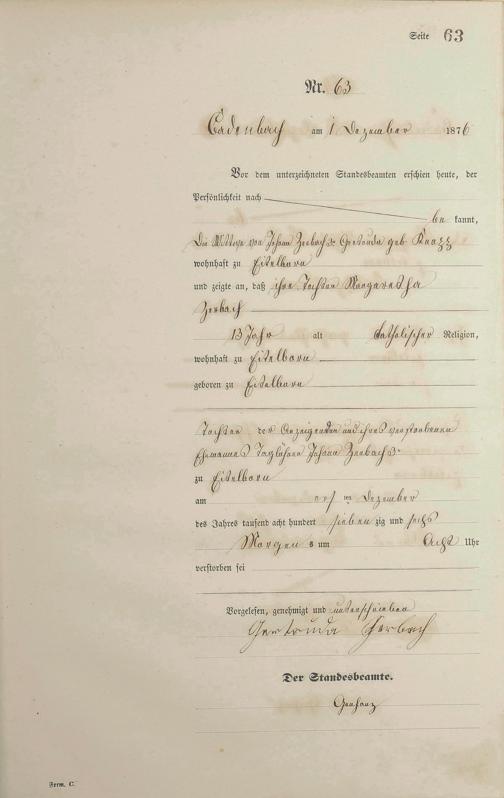 Seite 63
Nr. 63
Cadenbach am 1 Dezember 1876
Vor dem unterzeichneten Standesbeamten erschien heute, der
Persönlichkeit nach
be kannt,
Die Wittwe von Johann Zerbach 3r Gertruda geb. Knazz
wohnhaft zu Eitelborn
und zeigte an, daß ihre Tochter Margaretha
Zerbach
13 Jahr alt katholischer Religion,
wohnhaft zu Eitelborn
geboren zu Eitelborn
Tochter der Anzeigenden und ihres verstorbenen
Ehemannes Taglöhner Johann Zerbach 3r
zu Eitelborn
am ersten Dezember
des Jahres tausend acht hundert sieben zig und sechs
Morgen s um Acht Uhr
verstorben sei
Vorgelesen, genehmigt und unterschrieben
Gertruda Zerbach
Der Standesbeamte.
Form. C.